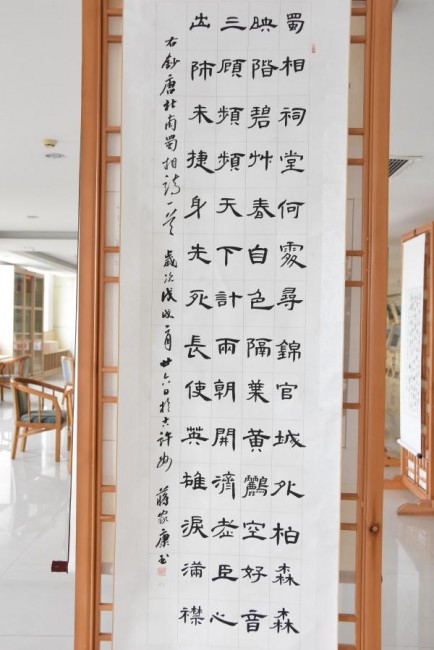 蜀相祠堂何處尋錦官城外柏森森
映階碧艸春自色隔葉黃鸝空好音
三顧頻頻天下計兩朝開濟老臣心
出師未捷身先死長使英雄淚滿襟
右鈔唐杜甫蜀相詩一首 歲次戊戌月廿六日於古許 蔣家康書